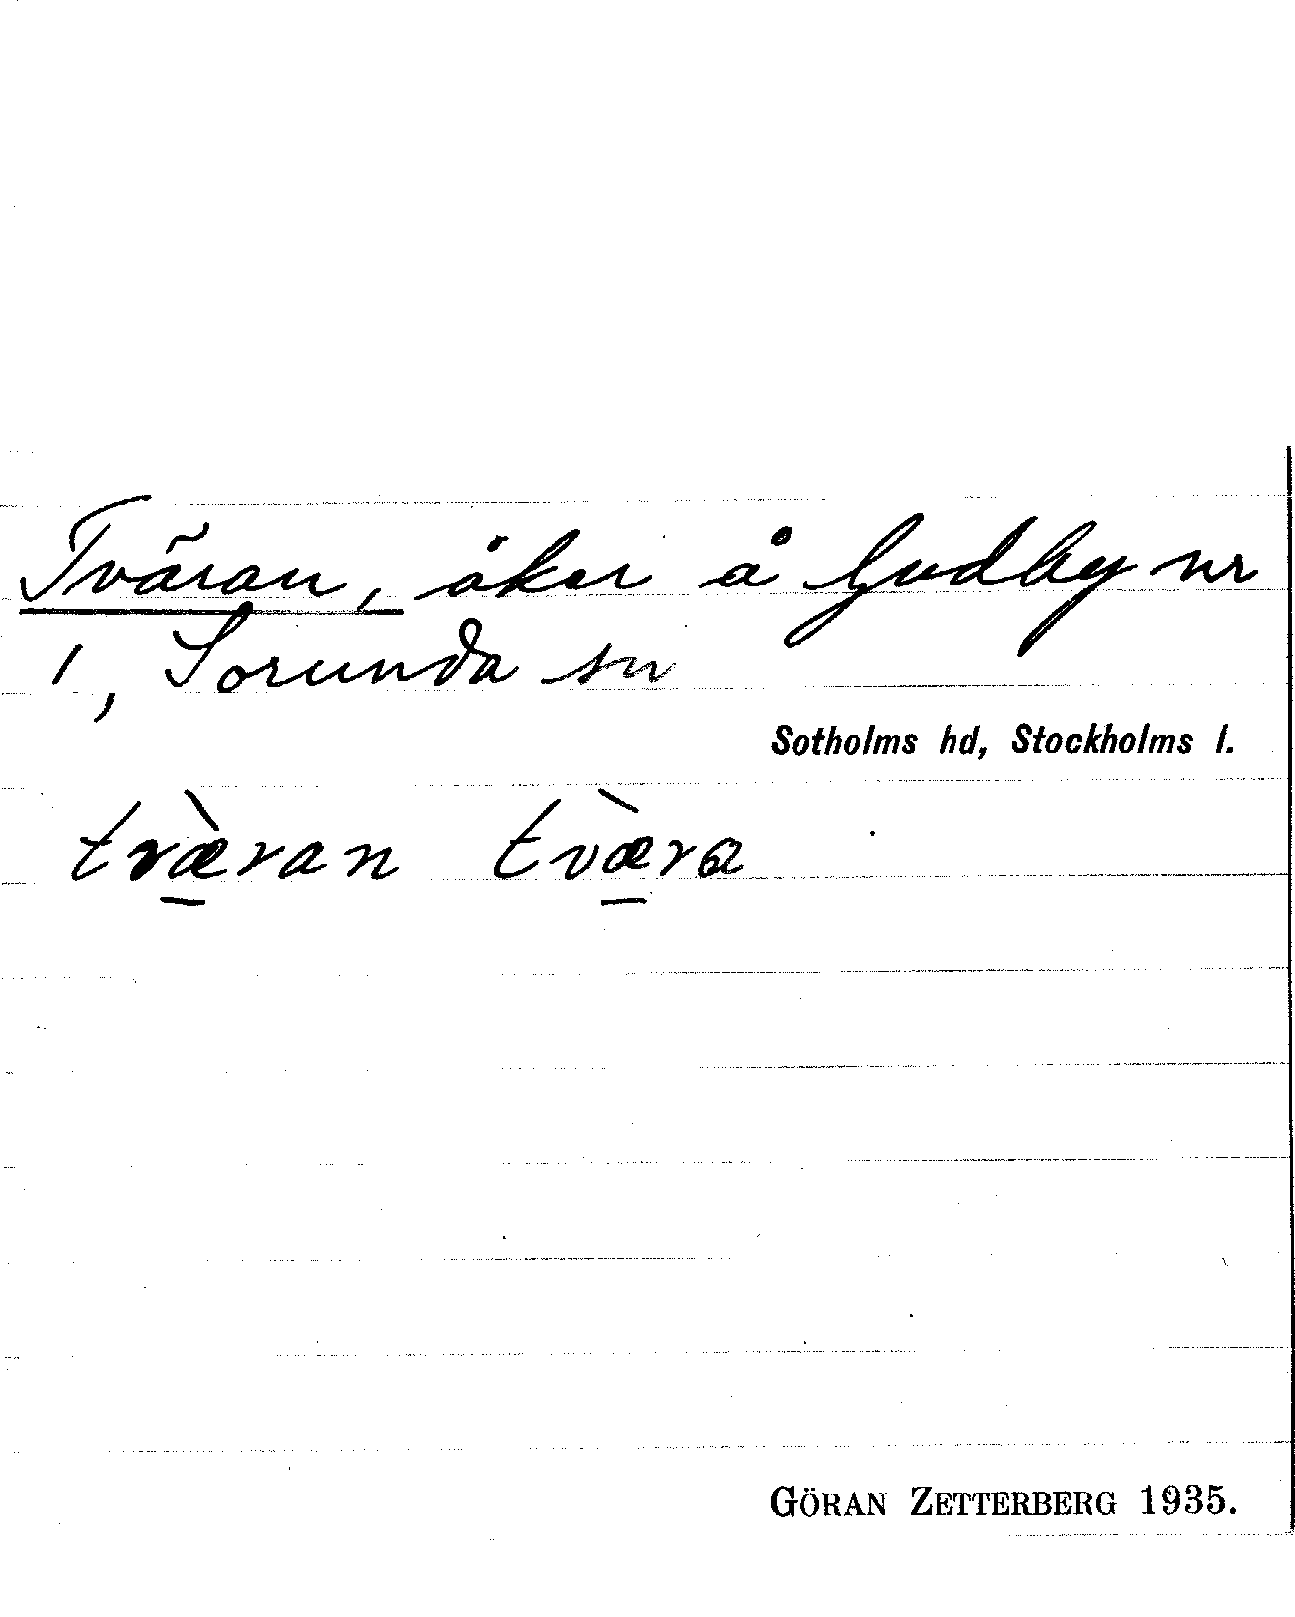 Tväran, åker å Gudby nr
1, Sorunda sn
Sotholms hd, Stockholms l.
tvæ̠̀ran tvæ̠̀ra
GÖRAN ZETTERBERG 1935.